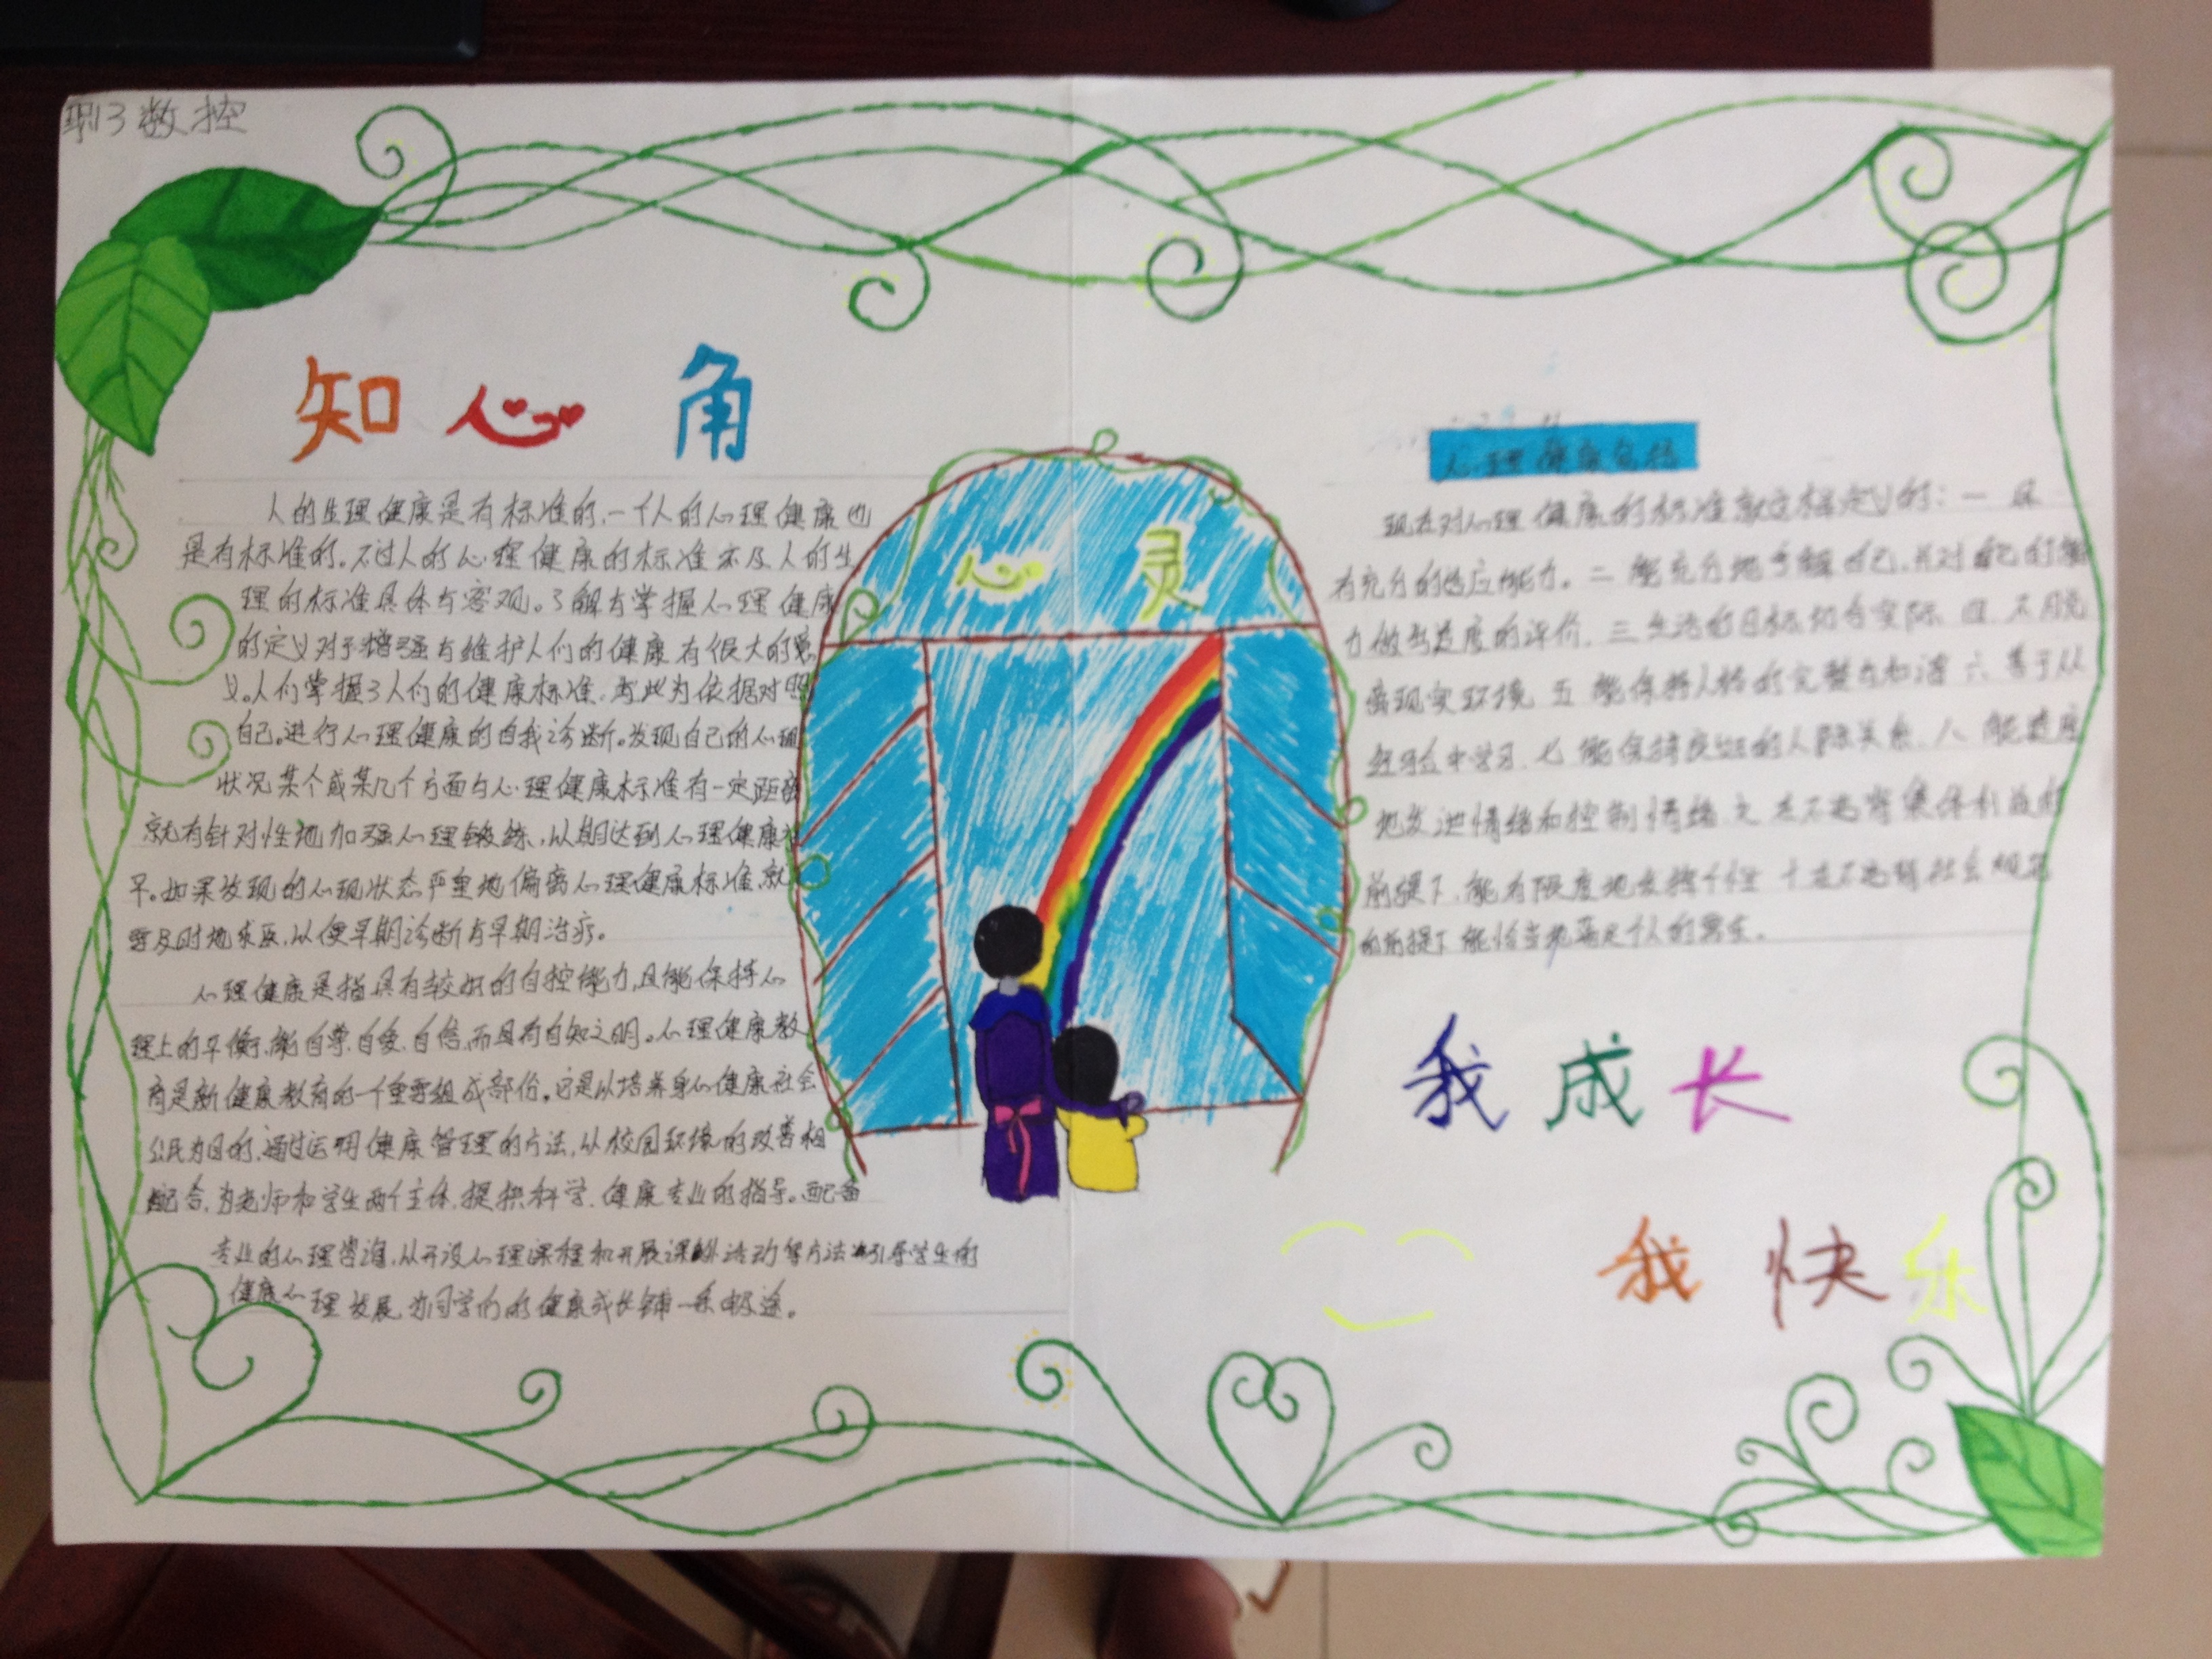 职13数控
知心角
人的生理健康是有标准的,一个人的心理健康也
是有标准的。不过人的心理健康的标准不及人的生
理的标准具体与客观。了解与掌握心理健康
的定义对于增强与维护人们的健康有很大的意
义。人们掌握了人们的健康标准,以此为依据对照
自己。进行心理健康的自我诊断。发现自己的心理
状况某个或某几个方面与心理健康标准有一定距离
就有针对性地加强心理锻炼,以期达到心理健康水
平。如果发现的心理状态严重地偏离心理健康标准,就
要及时地求医,以便早期诊断与早期治疗。
心理健康是指具有较好的自控能力,且能保持心
理上的平衡,能自尊、自爱、自信,而且有自知之明。心理健康教
育是新健康教育的一个重要组成部份。它是以培养身心健康社会
公民为目的,通过运用健康管理的方法,从校园环境的改善相
配合,为老师和学生两个主体,提供科学、健康专业的指导。配备
专业的心理咨询,从开设心理课程和开展课外活动等方法来引导学生的
健康心理发展,为同学们的健康成长铺一条坦途。
心灵
心理健康
现在对心理健康的标准就这样定义的:一 具
有充分的适应能力。二 能充分地了解自己,并对自己的能
力做出适度的评价. 三 生活的目标切合实际 四、不脱
离现实环境 五 能保持人格的完整与和谐 六 善于从
经验中学习、七 能保持良好的人际关系、八 能适度
地发泄情绪和控制情绪 九 在不违背集体利益的
前提下,能有限度地发挥个性 十 在不违背社会规范
的前提下能恰当地满足个人的需求。
我成长
我快乐